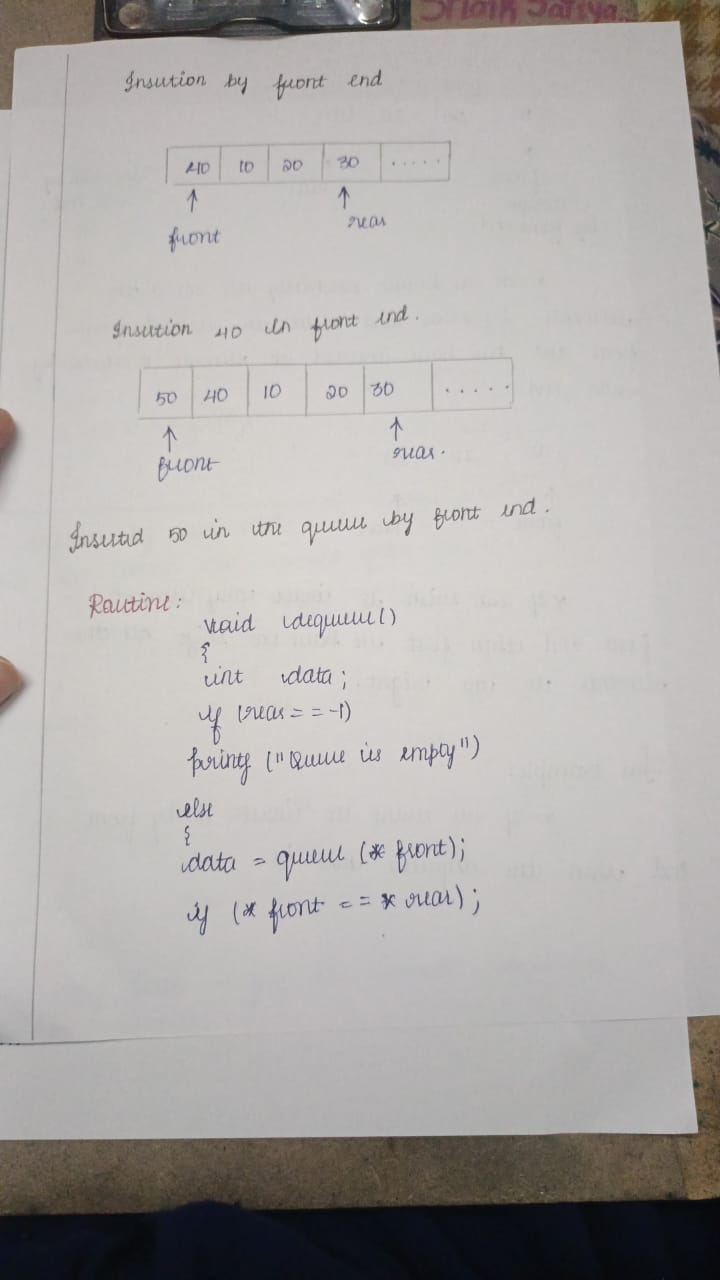 Shaik Safiya
Insertion by front end
40 10 20 30 .....
front rear
Insertion 40 in front end.
50 40 10 20 30 .....
front rear.
Inserted 50 in the queue by front end.
Routine:
void dequeue()
{
int data;
if (rear == -1)
printf ("Queue is empty")
else
{
data = queue (* front);
if (* front == * rear);